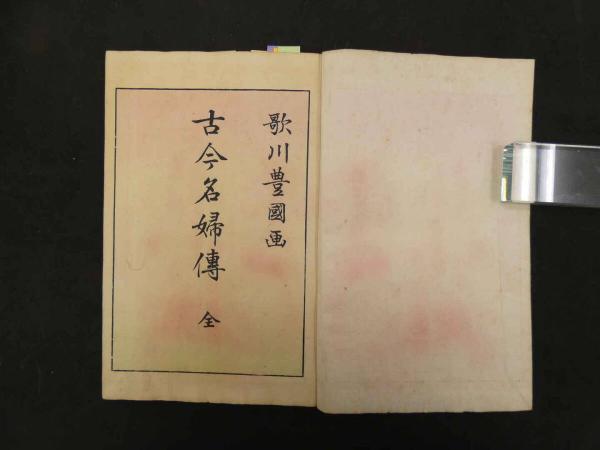 歌川豊國画
古今名婦傳 全